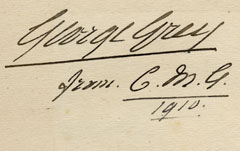 George Grey
from. C. M. G.
1910.